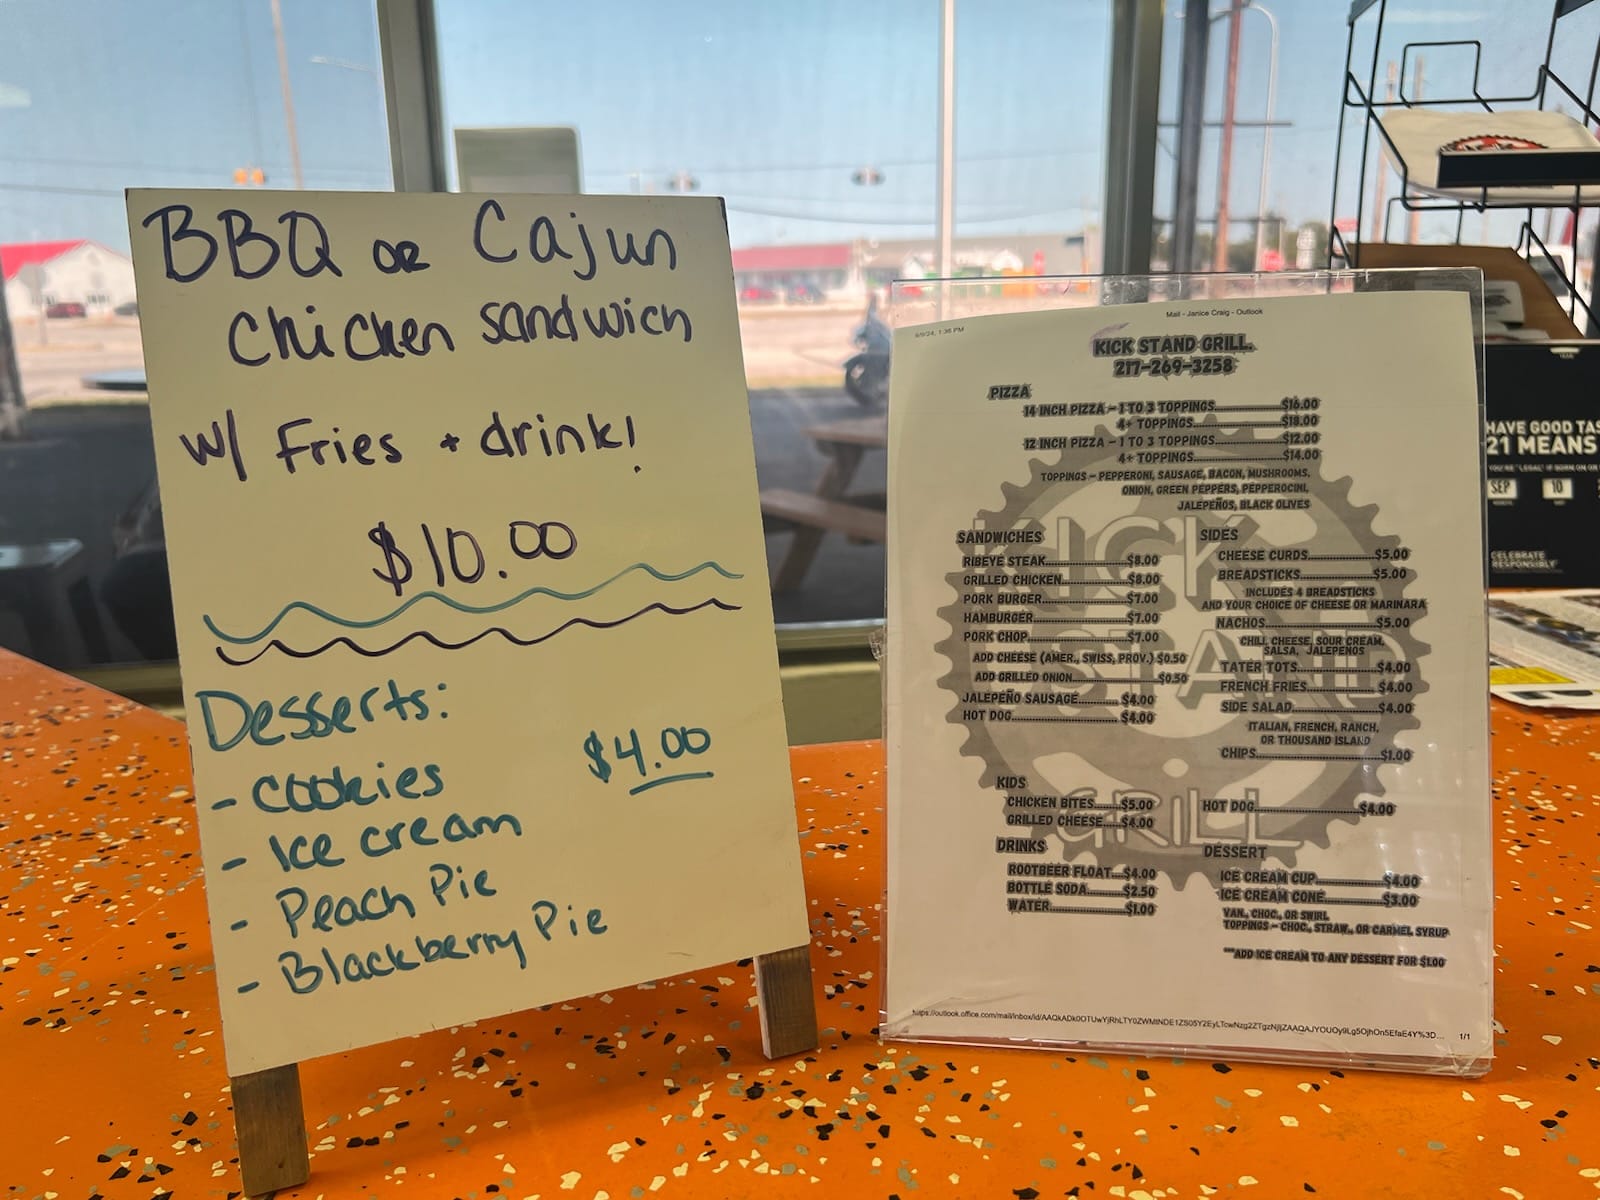 BBQ or Cajun
Chicken sandwich
w/ Fries + drink!
$10.00
Desserts:
- Cookies $4.00
- Ice cream
- Peach Pie
- Blackberry Pie
9/9/24, 1:36 PM
Mail - Janice Craig - Outlook
KICK STAND GRILL.
217-269-3258
PIZZA
14 INCH PIZZA - 1 TO 3 TOPPINGS...............$16.00
4+ TOPPINGS...............$18.00
12 INCH PIZZA - 1 TO 3 TOPPINGS...............$12.00
4+ TOPPINGS...............$14.00
TOPPINGS - PEPPERONI, SAUSAGE, BACON, MUSHROOMS,
ONION, GREEN PEPPERS, PEPPEROCINI,
JALEPEÑOS, BLACK OLIVES
SANDWICHES
RIBEYE STEAK...............$8.00
GRILLED CHICKEN...............$8.00
PORK BURGER...............$7.00
HAMBURGER...............$7.00
PORK CHOP...............$7.00
ADD CHEESE (AMER., SWISS, PROV.) $0.50
ADD GRILLED ONION...............$0.50
JALEPEÑO SAUSAGE...............$4.00
HOT DOG...............$4.00
SIDES
CHEESE CURDS...............$5.00
BREADSTICKS...............$5.00
INCLUDES 4 BREADSTICKS
AND YOUR CHOICE OF CHEESE OR MARINARA
NACHOS...............$5.00
CHILI, CHEESE, SOUR CREAM,
SALSA, JALEPEÑOS
TATER TOTS...............$4.00
FRENCH FRIES...............$4.00
SIDE SALAD...............$4.00
ITALIAN, FRENCH, RANCH,
OR THOUSAND ISLAND
CHIPS...............$1.00
KIDS
CHICKEN BITES......$5.00
GRILLED CHEESE.....$4.00
HOT DOG...............$4.00
DRINKS
ROOTBEER FLOAT....$4.00
BOTTLE SODA......$2.50
WATER...............$1.00
DESSERT
ICE CREAM CUP...............$4.00
ICE CREAM CONE...............$3.00
VAN., CHOC., OR SWIRL
TOPPINGS - CHOC., STRAW., OR CARMEL SYRUP
***ADD ICE CREAM TO ANY DESSERT FOR $1.00
KICK
STAND
GRILL
1/1
HAVE GOOD
21 MEANS
SEP 10
CELEBRATE
RESPONSIBLY